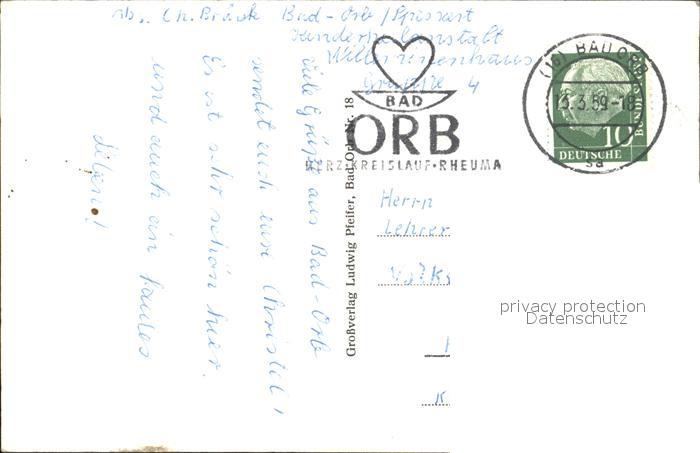 Bad-Orb/Spessart
Kinderheilanstalt
Gruppe 4
BAD
ORB
HERZ·KREISLAUF·RHEUMA
(16) BAD ORB
13.3.59-18
sa
10
DEUTSCHE
BUNDESPOST
Herrn
Lehrer
Volks
privacy protection
Datenschutz
Großverlag Ludwig Pfeifer, Bad Orb Nr. 18
viele Grüsse aus Bad-Orb
sendet euch eure Christel,
Es ist sehr schön hier.
und auch ein faules
Leben!